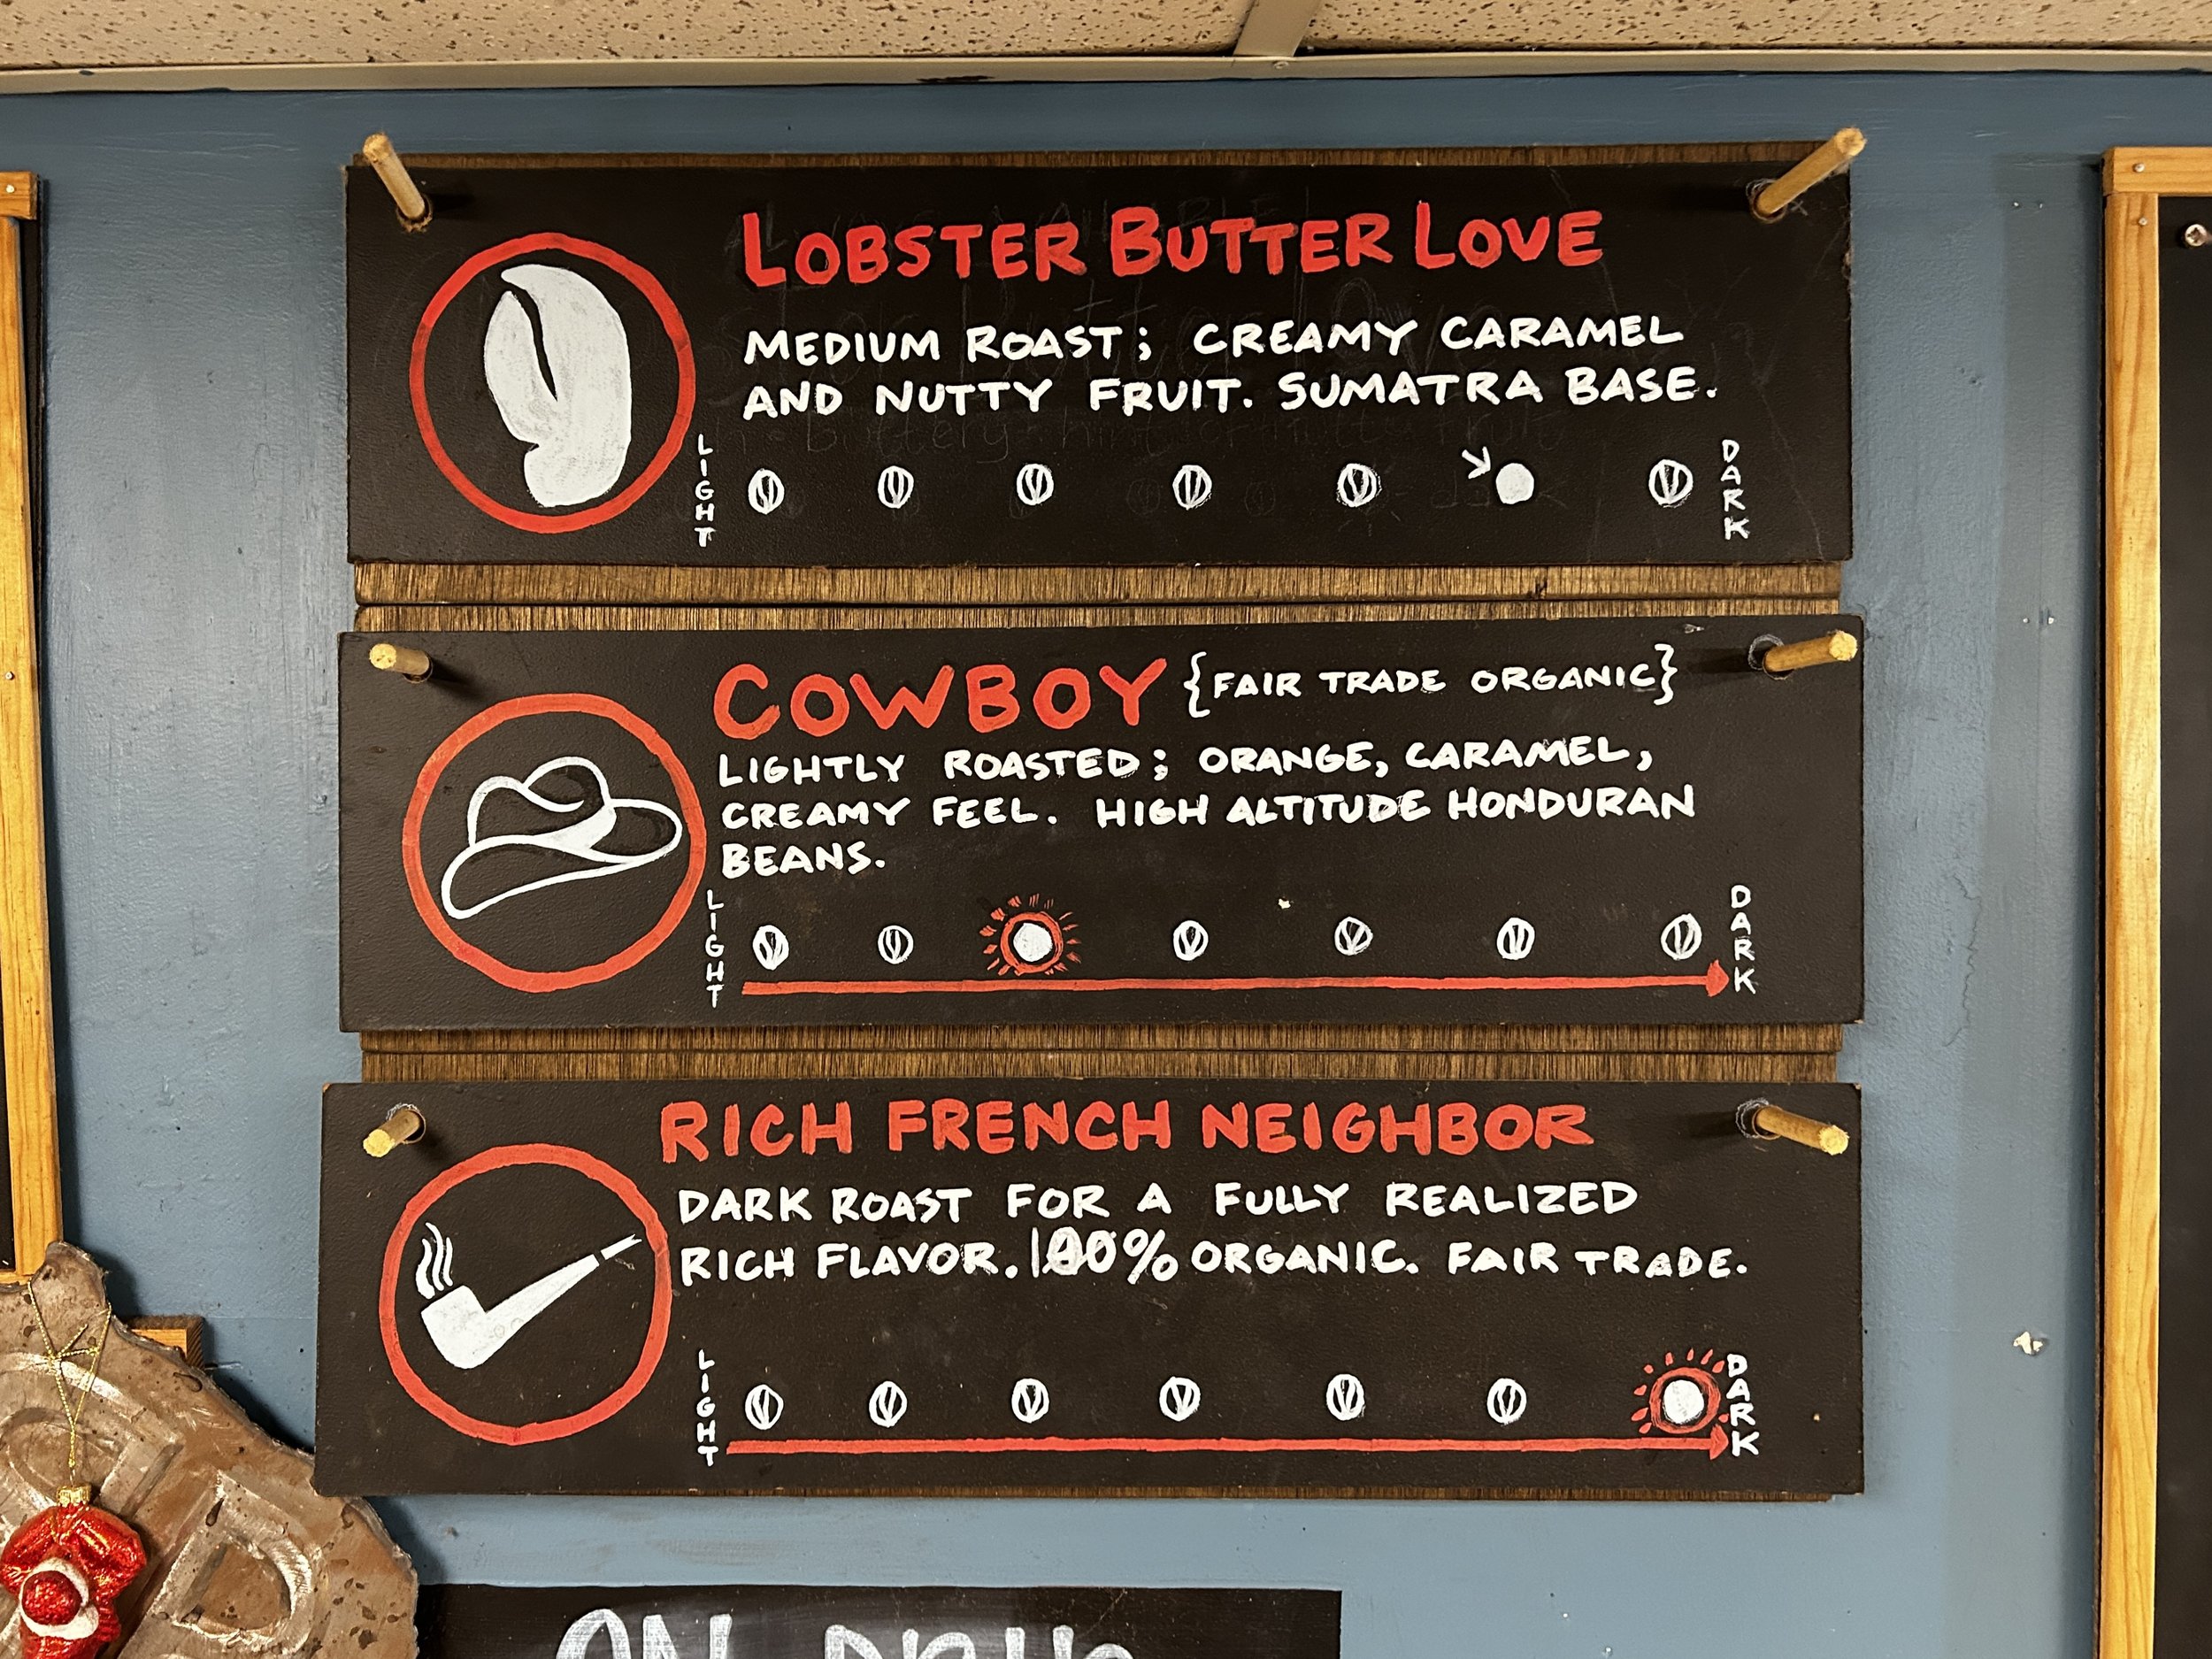 LOBSTER BUTTER LOVE
MEDIUM ROAST; CREAMY CARAMEL
AND NUTTY FRUIT. SUMATRA BASE.
LIGHT
DARK
COWBOY {FAIR TRADE ORGANIC}
LIGHTLY ROASTED; ORANGE, CARAMEL,
CREAMY FEEL. HIGH ALTITUDE HONDURAN
BEANS.
LIGHT
DARK
RICH FRENCH NEIGHBOR
DARK ROAST FOR A FULLY REALIZED
RICH FLAVOR. 100% ORGANIC. FAIR TRADE.
LIGHT
DARK
ON